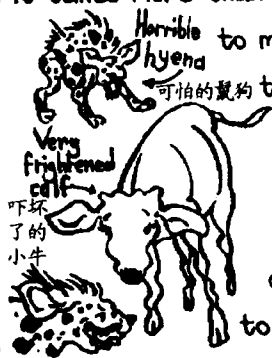 Horrible
hyena
to m
可怕的鬣狗 t
Very
frightened
calf
吓坏
了的
小牛
to